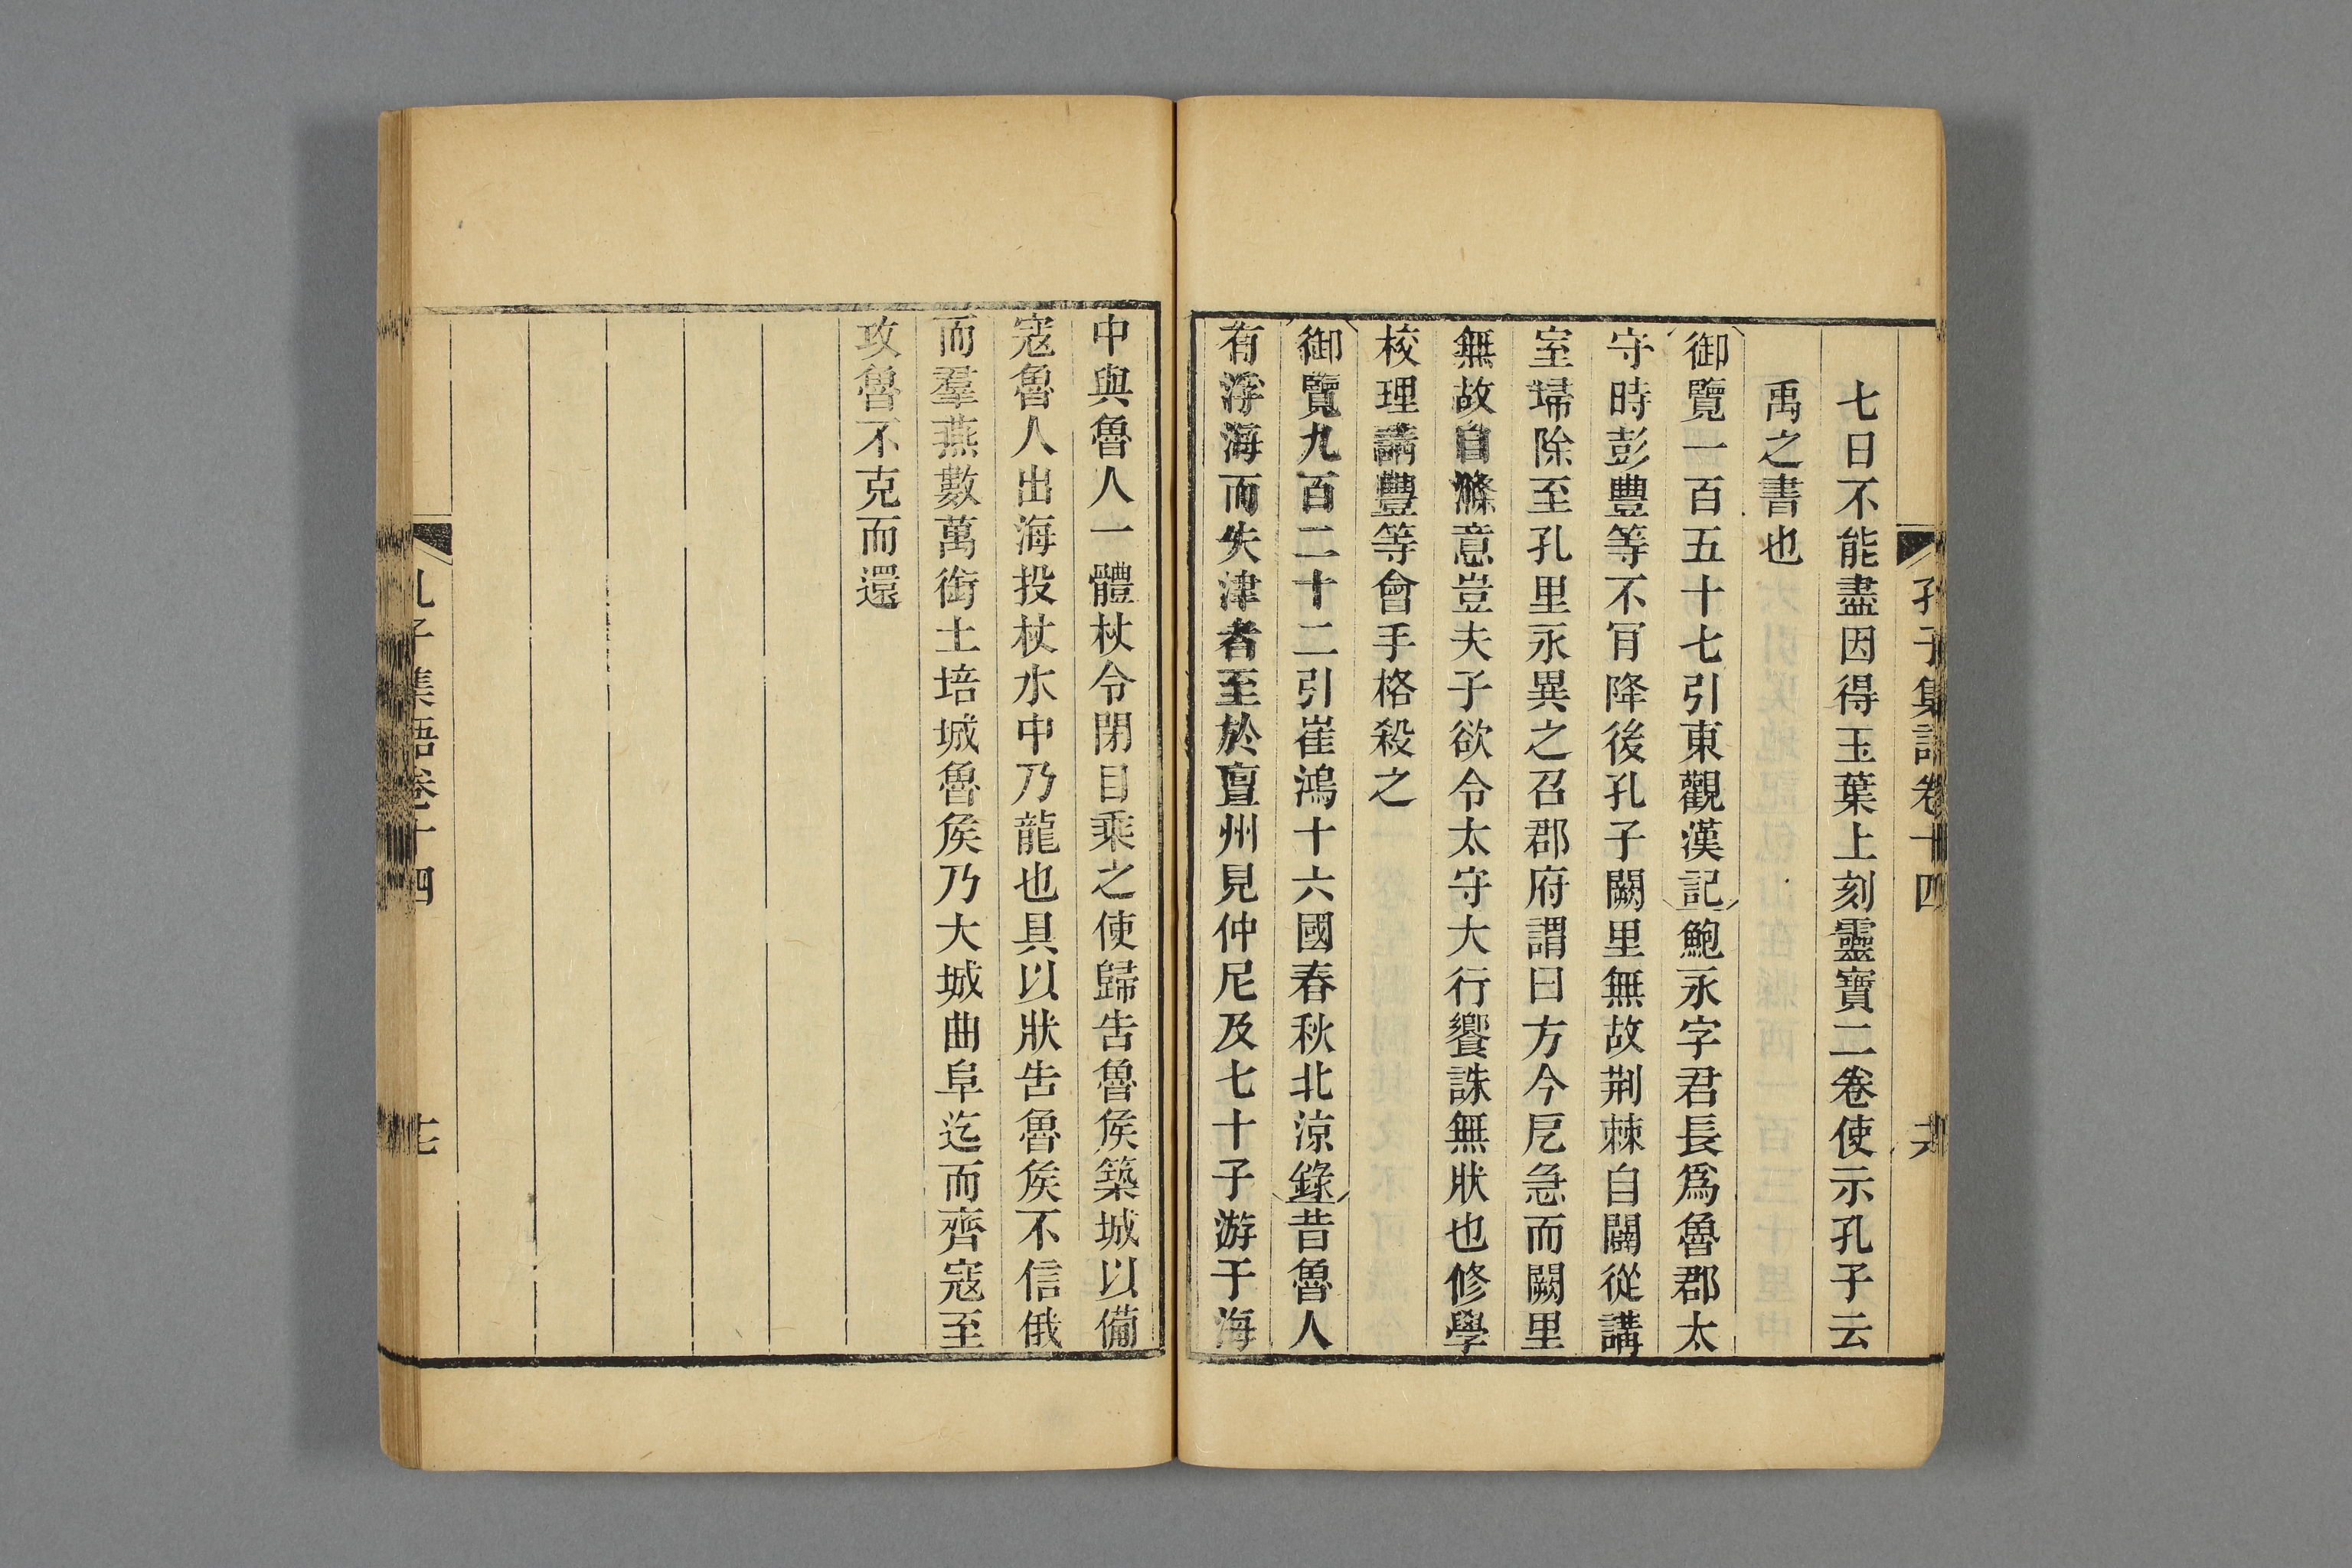 孔子集語卷十四
七日不能盡因得玉葉上刻靈寶二卷使示孔子云
禹之書也
御覽一百五十七引東觀漢記鮑永字君長爲魯郡太
守時彭豐等不肎降後孔子闕里無故荆棘自闢從講
室埽除至孔里永異之召郡府謂曰方今戹急而闕里
無故自滌意豈夫子欲令太守大行饗誅無狀也修學
校理請豐等會手格殺之
御覽九百二十二引崔鴻十六國春秋北涼錄昔魯人
有浮海而失津者至於亶州見仲尼及七十子游于海
中與魯人一體杖令閉目乘之使歸告魯矦築城以備
寇魯人出海投杖水中乃龍也具以狀告魯矦不信俄
而羣燕數萬銜土培城魯矦乃大城曲阜迄而齊寇至
攻魯不克而還
孔子集語卷十四